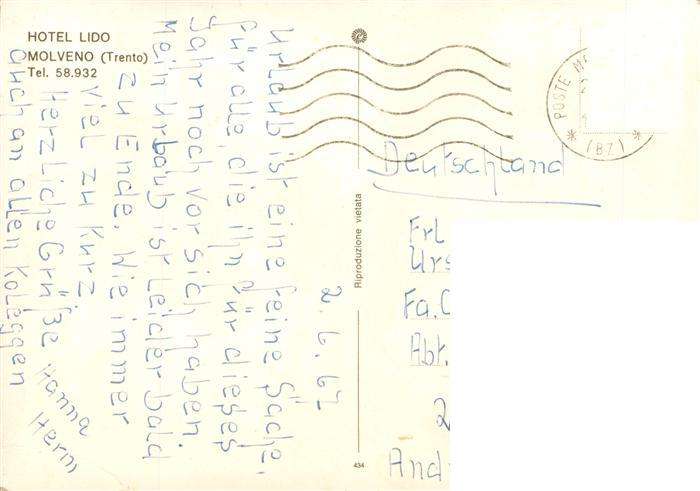 HOTEL LIDO
MOLVENO (Trento)
Tel. 58.932
2.6.67
Urlaub ist eine feine Sache,
für alle, die ihn für dieses
Jahr noch vor sich haben
Mein Urlaub ist leider bald
zu Ende. Wie immer
viel zu kurz
Herzliche Grüße
auch an allen Kolleggen
Hanna
Herm
Riproduzione vietata
434
POSTE
(BZ)
Deutschland
Frl
Urs
Fa.
Abt.
2
And